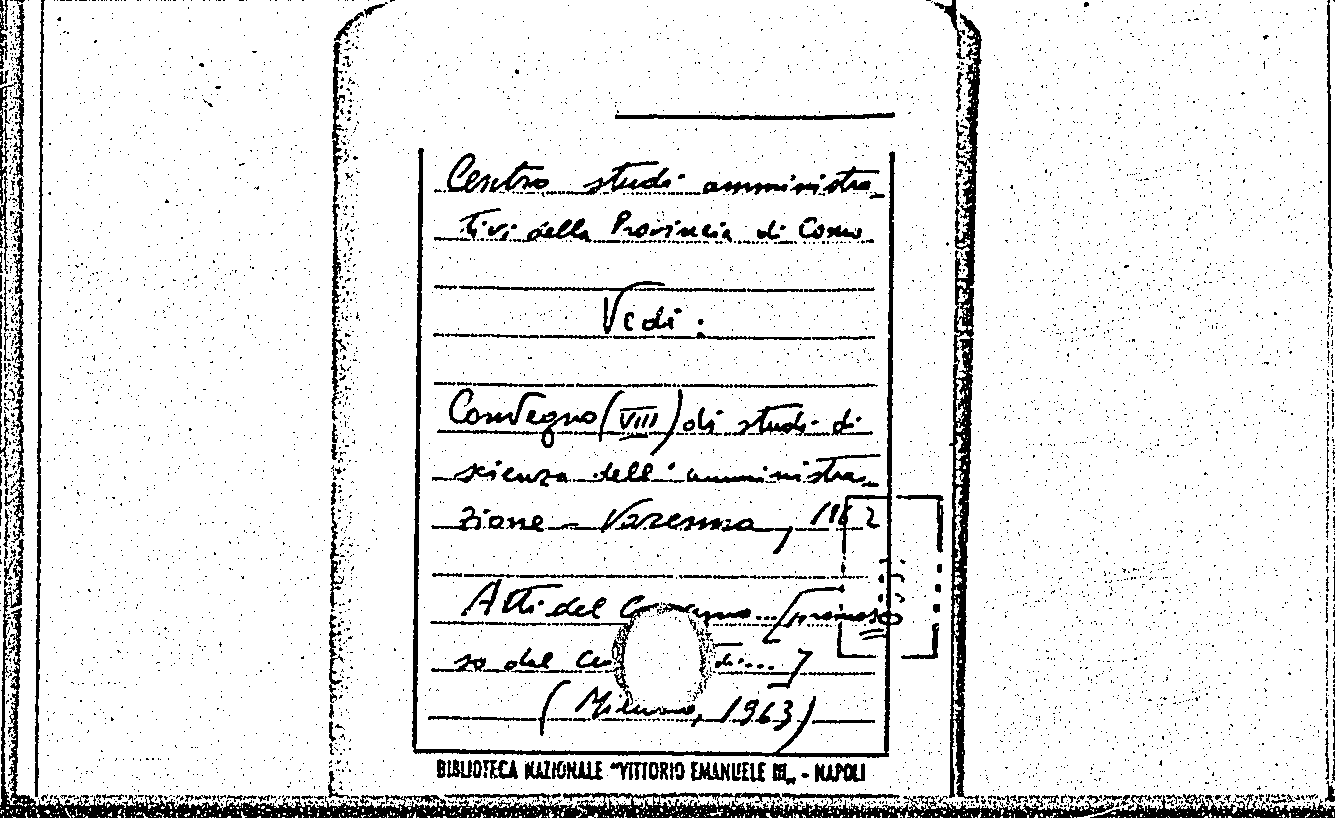 Centro studi amministra_
tivi della Provincia di Como
Vedi:
Convegno (VIII) di studi di
scienza dell'amministra_
zione - Varenna, 1962
Atti del ... [promos
so dal di...]
(Milano, 1963)
BIBLIOTECA NAZIONALE "VITTORIO EMANUELE III„ - NAPOLI